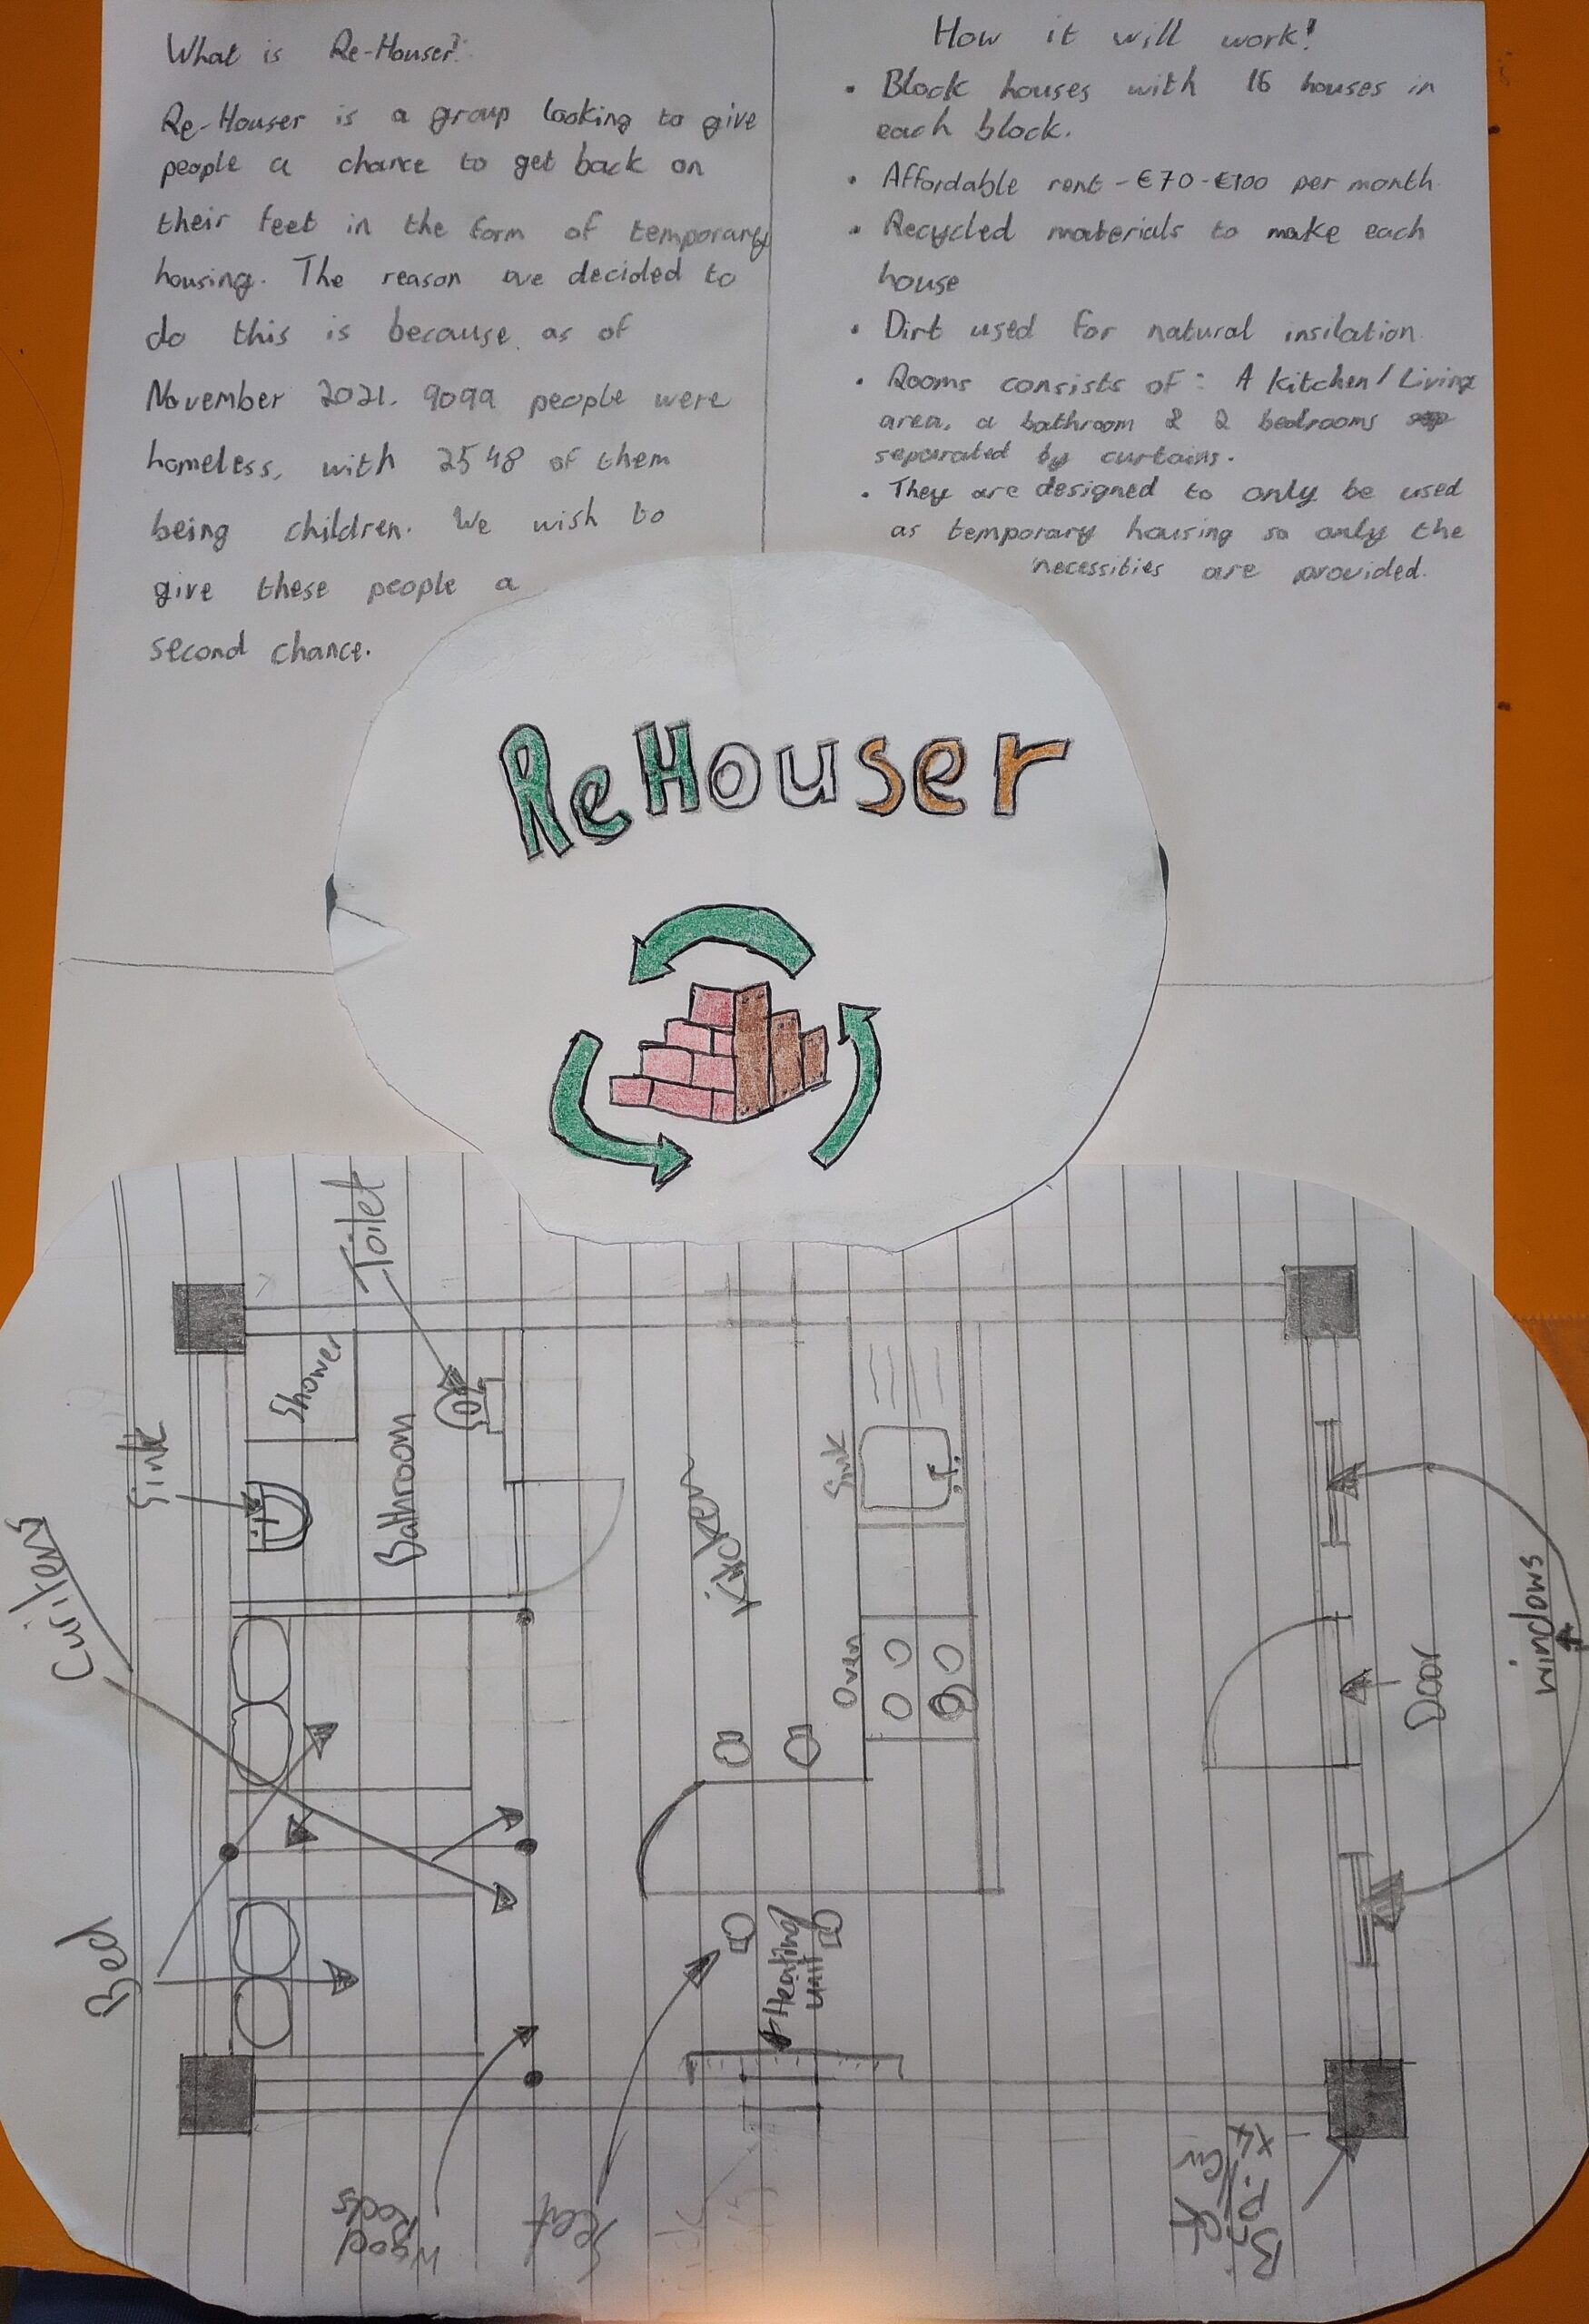 What is Re-Houser?
Re-Houser is a group looking to give
people a chance to get back on
their feet in the form of temporary
housing. The reason we decided to
do this is because, as of
November 2021. 9099 people were
homeless, with 2548 of them
being children. We wish to
give these people a
second chance.
How it will work!
• Block houses with 16 houses in
each block.
• Affordable rent - €70-€100 per month
• Recycled materials to make each
house
• Dirt used for natural insilation
• Rooms consists of: A kitchen/Living
area, a bathroom & 2 bedrooms
separated by curtains.
• They are designed to only be used
as temporary housing so only the
necessities are provided.
ReHouser
Toilet
Shower
Sink
Bathroom
Curitens
Kitchen
Sink
Oven
Door
windows
Bed
Heating
unit
Wood
Rods
Seat
Brick
Piller
x4